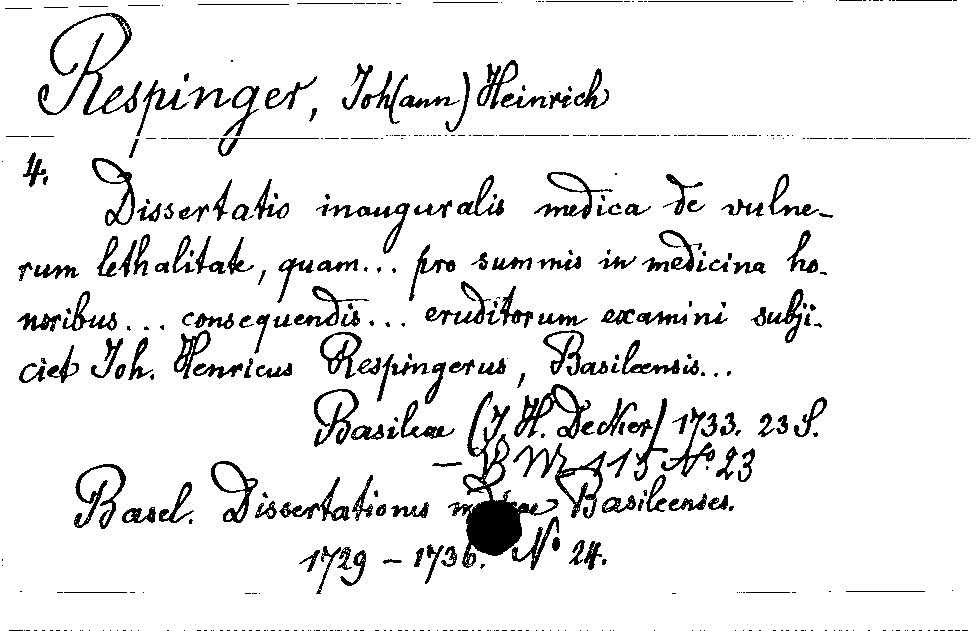 Respinger, Joh(ann) Heinrich
4.
Dissertatio inauguralis medica de vulne-
rum lethalitate, quam... pro summis in medicina ho-
noribus... consequendis... eruditorum examini subji-
ciet Joh. Henricus Respingerus, Basileensis...
Basileae (J. H. Decker) 1733. 23 S.
– B M 115 No 23
Basel. Dissertationes medicae Basileenses.
1729 – 1736. No 24.